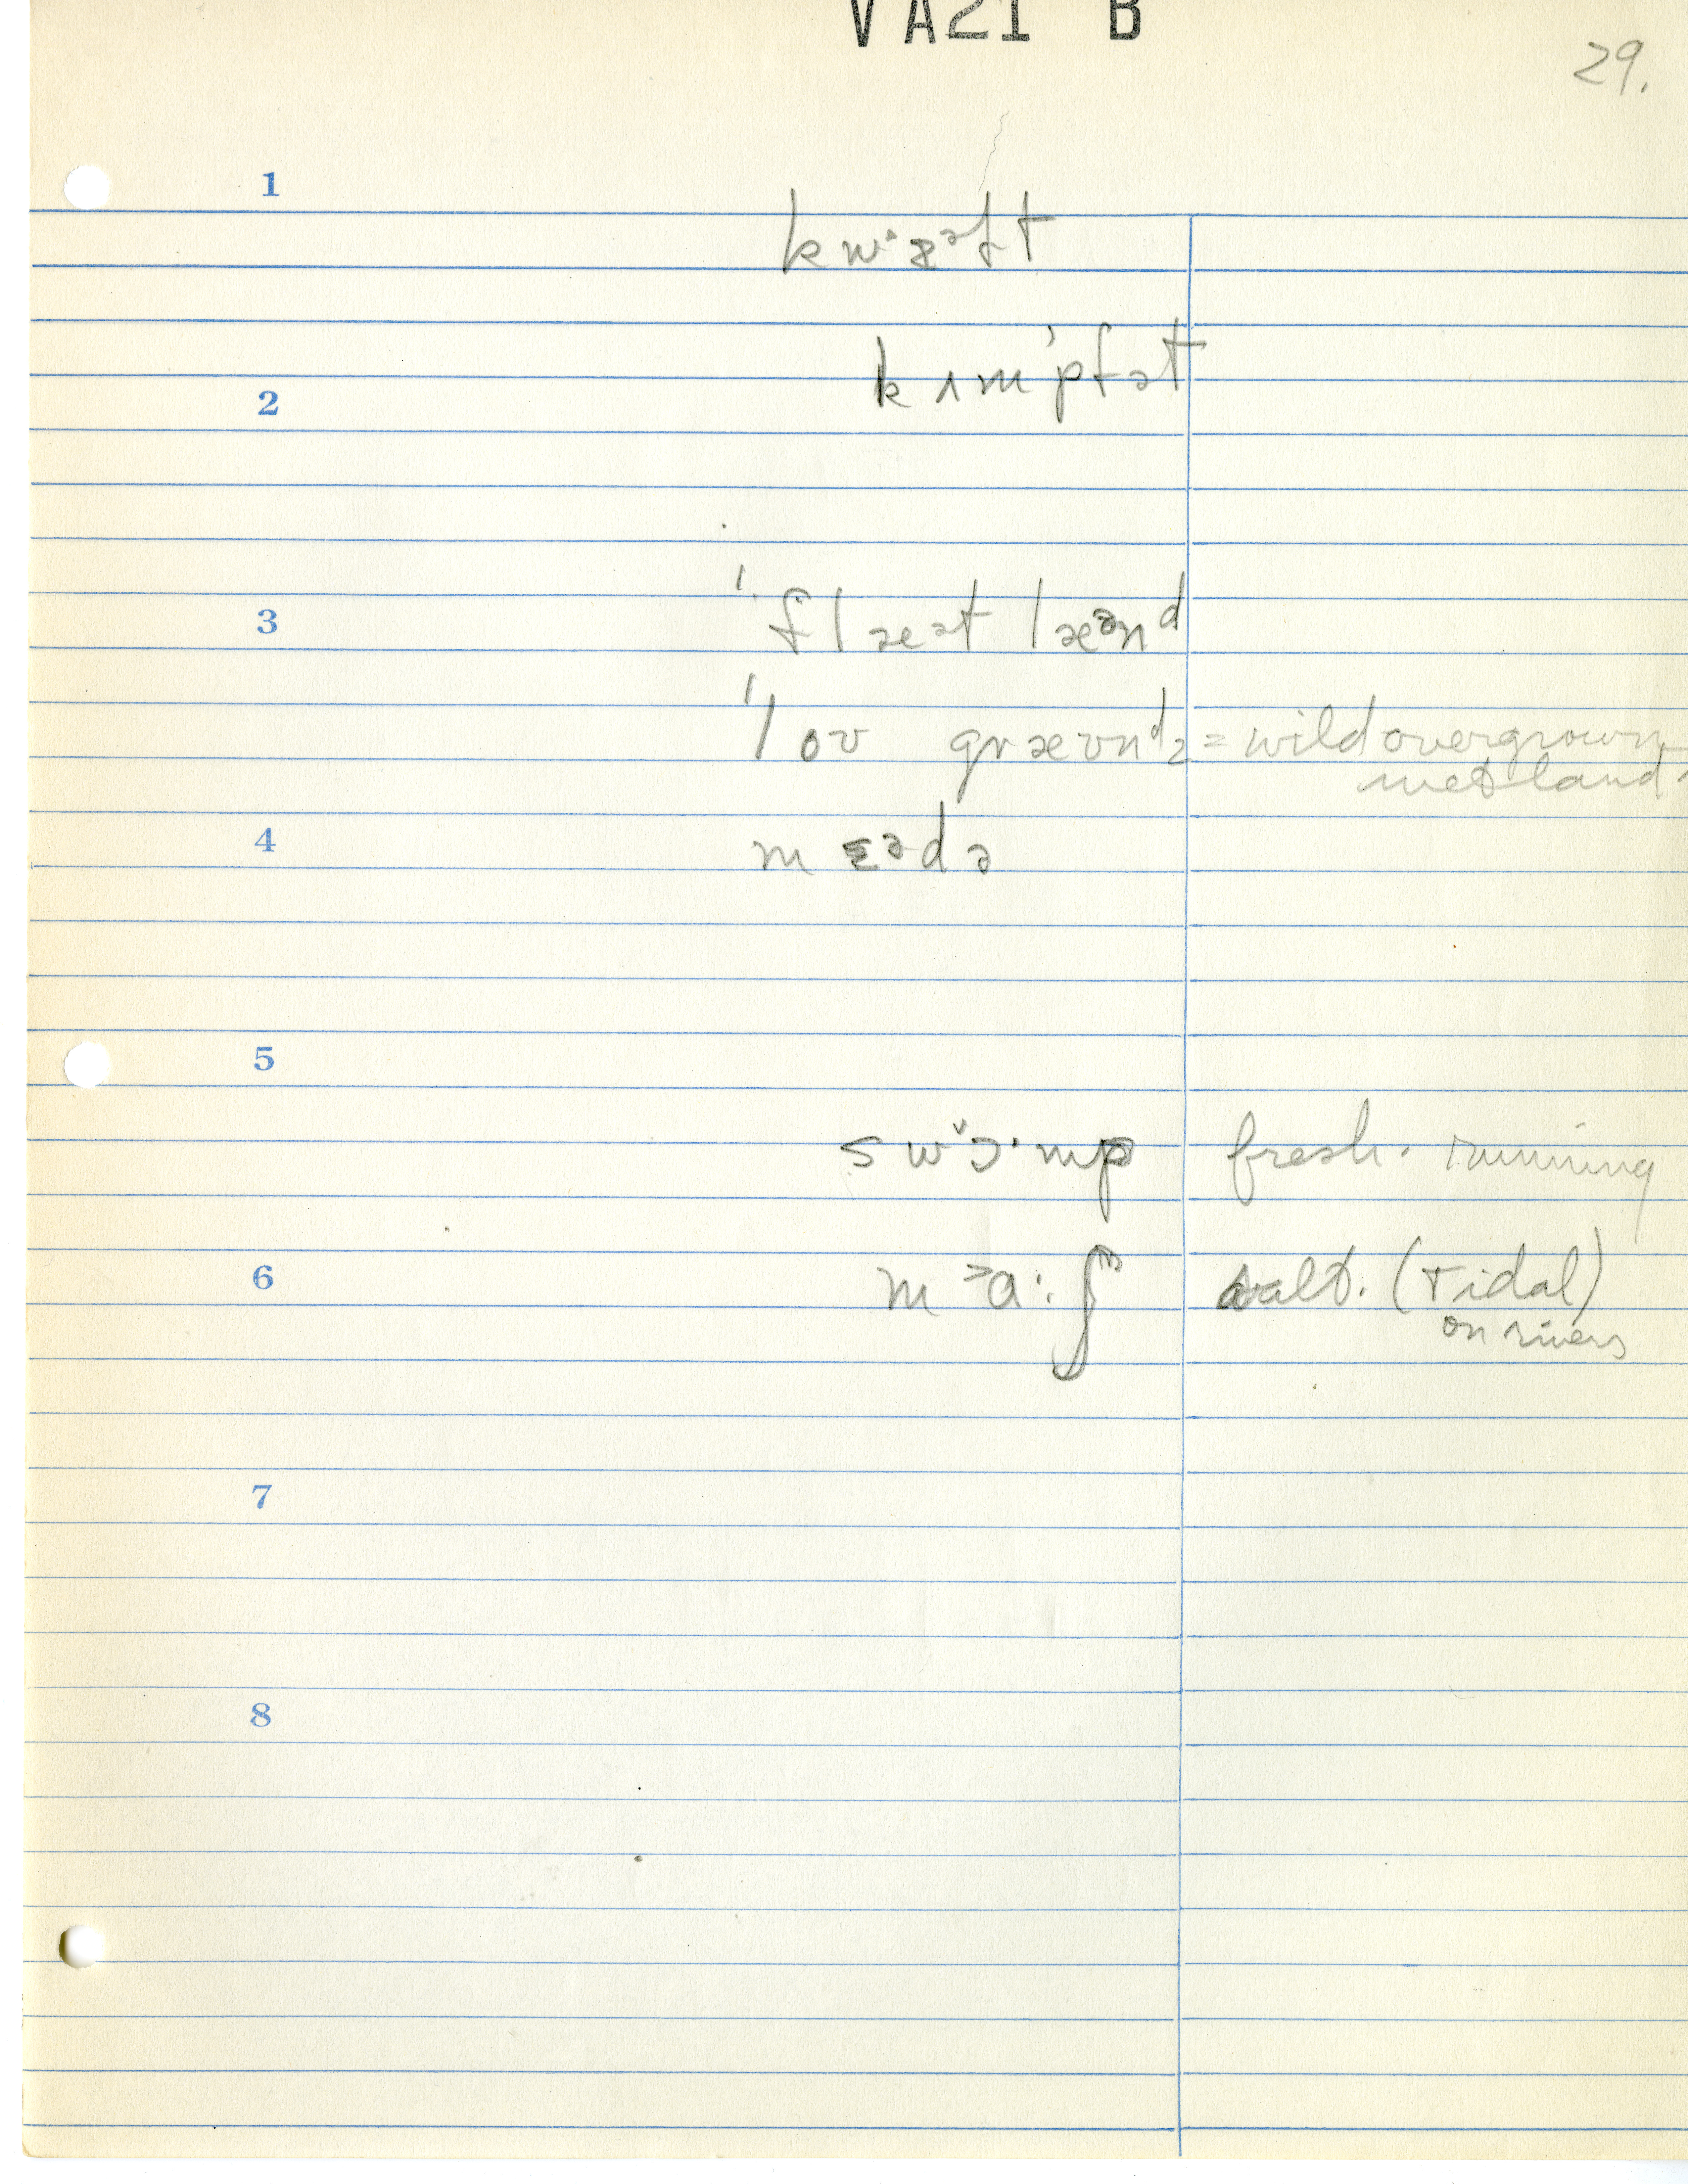 VA21 B
29.
1
kwᶤæᵊft
2
kʌm'pfət
3
'flæət læənᵈ
'loʊ græʊnᵈz = wild overgrown
wet land.
4
mɛᵊdə
5
swɔ˞·mp fresh. running
6
m˃a:ʃ salt. (tidal)
on rivers
7
8